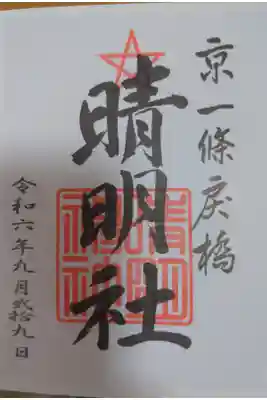 京一條戻橋
晴明社
令和六年九月弐拾九日